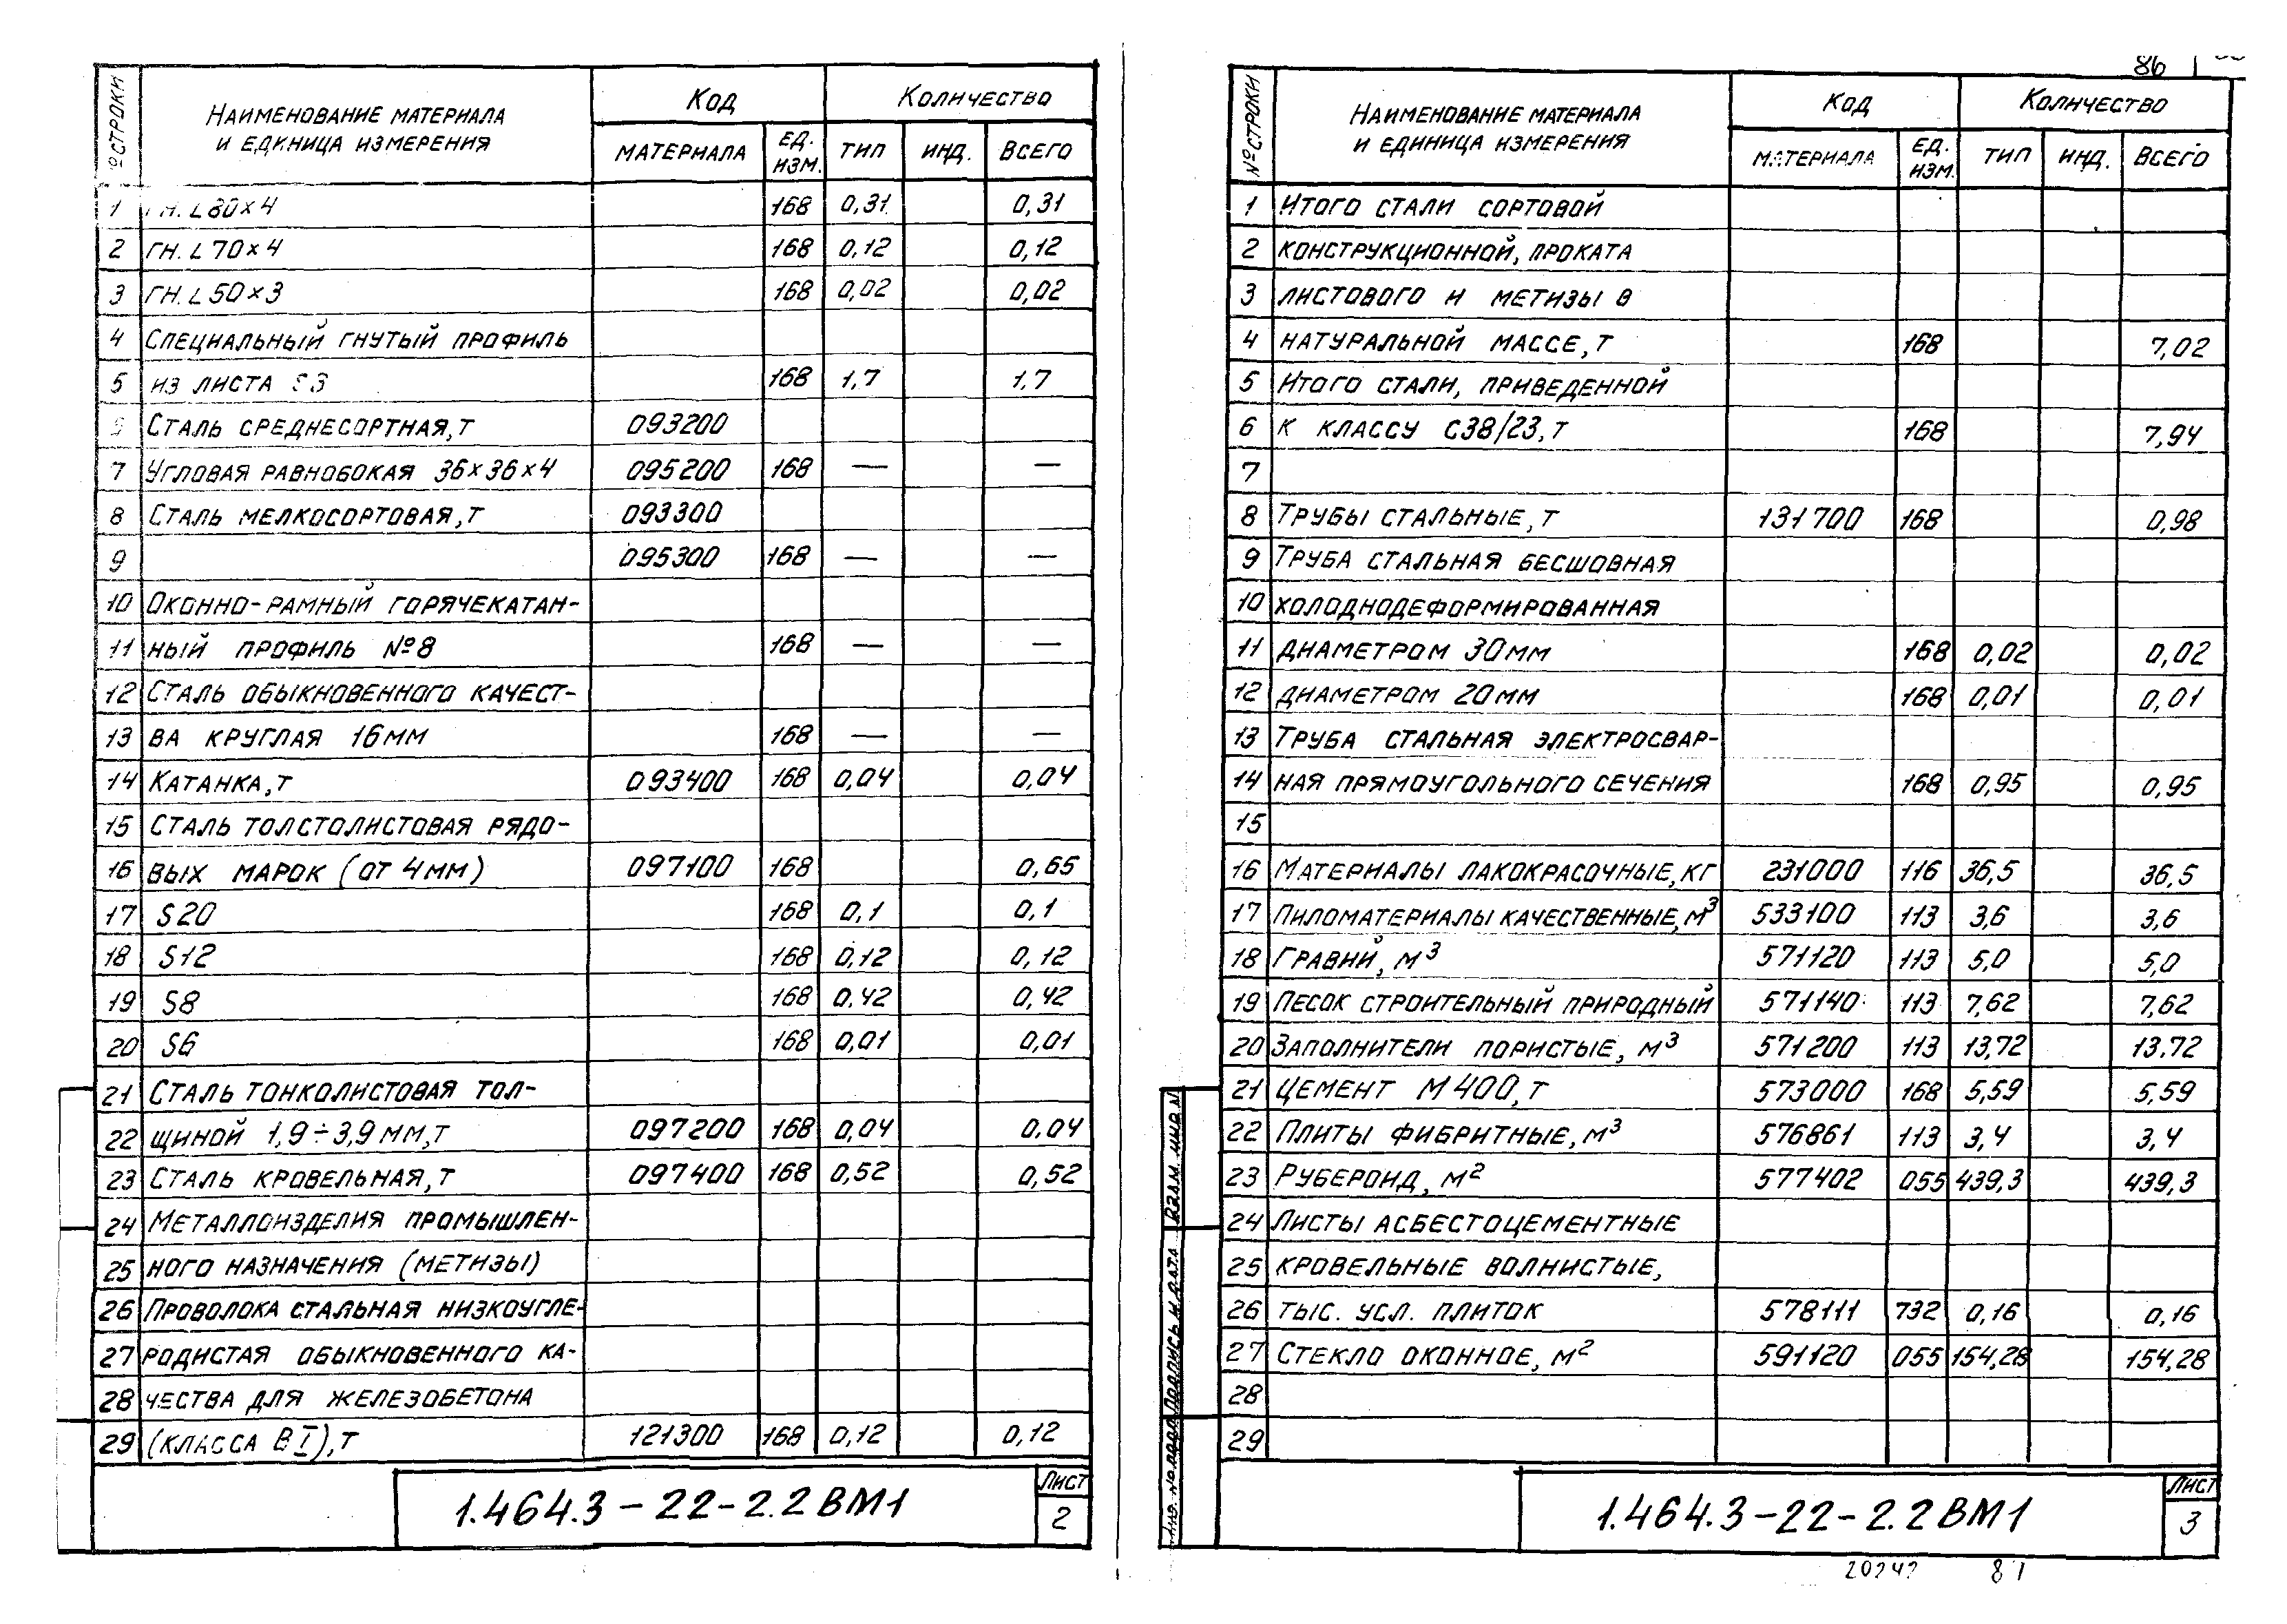 № СТРОКИ | НАИМЕНОВАНИЕ МАТЕРИАЛА И ЕДИНИЦА ИЗМЕРЕНИЯ | КОД | КОЛИЧЕСТВО
МАТЕРИАЛА | ЕД. ИЗМ. | ТИП | ИНД. | ВСЕГО
1 ГН. L 80×4 168 0,31 0,31
2 ГН. L 70×4 168 0,12 0,12
3 ГН. L 50×3 168 0,02 0,02
4 СПЕЦИАЛЬНЫЙ ГНУТЫЙ ПРОФИЛЬ
5 ИЗ ЛИСТА S3 168 1,7 1,7
6 СТАЛЬ СРЕДНЕСОРТНАЯ, Т 093200
7 УГЛОВАЯ РАВНОБОКАЯ 36×36×4 095200 168 — —
8 СТАЛЬ МЕЛКОСОРТОВАЯ, Т 093300
9 095300 168 — —
10 ОКОННО-РАМНЫЙ ГОРЯЧЕКАТАН-
11 НЫЙ ПРОФИЛЬ №8 168 — —
12 СТАЛЬ ОБЫКНОВЕННОГО КАЧЕСТ-
13 ВА КРУГЛАЯ 16ММ 168 — —
14 КАТАНКА, Т 093400 168 0,04 0,04
15 СТАЛЬ ТОЛСТОЛИСТОВАЯ РЯДО-
16 ВЫХ МАРОК (ОТ 4ММ) 097100 168 0,65
17 S20 168 0,1 0,1
18 S12 168 0,12 0,12
19 S8 168 0.42 0,42
20 S6 168 0,01 0,01
21 СТАЛЬ ТОНКОЛИСТОВАЯ ТОЛ-
22 ЩИНОЙ 1,9÷3,9 ММ, Т 097200 168 0,04 0.04
23 СТАЛЬ КРОВЕЛЬНАЯ, Т 097400 168 0,52 0,52
24 МЕТАЛЛОИЗДЕЛИЯ ПРОМЫШЛЕН-
25 НОГО НАЗНАЧЕНИЯ (МЕТИЗЫ)
26 ПРОВОЛОКА СТАЛЬНАЯ НИЗКОУГЛЕ-
27 РОДИСТАЯ ОБЫКНОВЕННОГО КА-
28 ЧЕСТВА ДЛЯ ЖЕЛЕЗОБЕТОНА
29 (КЛАССА ВI), Т 121300 168 0,12 0,12
1.464.3-22-2.2ВМ1
ЛИСТ
2
86
№ СТРОКИ | НАИМЕНОВАНИЕ МАТЕРИАЛА И ЕДИНИЦА ИЗМЕРЕНИЯ | КОД | КОЛИЧЕСТВО
МАТЕРИАЛА | ЕД. ИЗМ. | ТИП | ИНД. | ВСЕГО
1 ИТОГО СТАЛИ СОРТОВОЙ
2 КОНСТРУКЦИОННОЙ, ПРОКАТА
3 ЛИСТОВОГО И МЕТИЗЫ В
4 НАТУРАЛЬНОЙ МАССЕ, Т 168 7,02
5 ИТОГО СТАЛИ, ПРИВЕДЕННОЙ
6 К КЛАССУ С38/23, Т 168 7,94
7
8 ТРУБЫ СТАЛЬНЫЕ, Т 131700 168 0,98
9 ТРУБА СТАЛЬНАЯ БЕСШОВНАЯ
10 ХОЛОДНОДЕФОРМИРОВАННАЯ
11 ДИАМЕТРОМ 30ММ 168 0,02 0,02
12 ДИАМЕТРОМ 20ММ 168 0,01 0,01
13 ТРУБА СТАЛЬНАЯ ЭЛЕКТРОСВАР-
14 НАЯ ПРЯМОУГОЛЬНОГО СЕЧЕНИЯ 168 0,95 0,95
15
16 МАТЕРИАЛЫ ЛАКОКРАСОЧНЫЕ, КГ 231000 116 36,5 36,5
17 ПИЛОМАТЕРИАЛЫ КАЧЕСТВЕННЫЕ, М³ 533100 113 3,6 3,6
18 ГРАВИЙ, М³ 571120 113 5,0 5,0
19 ПЕСОК СТРОИТЕЛЬНЫЙ ПРИРОДНЫЙ 571140 113 7,62 7,62
20 ЗАПОЛНИТЕЛИ ПОРИСТЫЕ, М³ 571200 113 13,72 13.72
21 ЦЕМЕНТ М400, Т 573000 168 5,59 5,59
22 ПЛИТЫ ФИБРИТНЫЕ, М³ 576861 113 3,4 3,4
23 РУБЕРОИД, М² 577402 055 439,3 439,3
24 ЛИСТЫ АСБЕСТОЦЕМЕНТНЫЕ
25 КРОВЕЛЬНЫЕ ВОЛНИСТЫЕ,
26 ТЫС. УСЛ. ПЛИТОК 578111 732 0,16 0,16
27 СТЕКЛО ОКОННОЕ, М² 591120 055 154,28 154,28
28
29
ВЗАМ. ИНВ. №
ПОДПИСЬ И ДАТА
ИНВ. № ПОДЛ.
1.464.3-22-2.2ВМ1
ЛИСТ
3
81